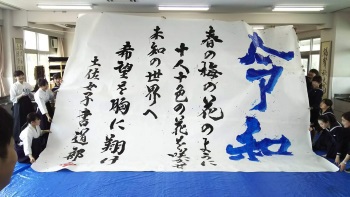 令和
春の梅の花のように
十人十色の花を咲かせ
未知の世界へ
希望を胸に翔け
土佐女子書道部